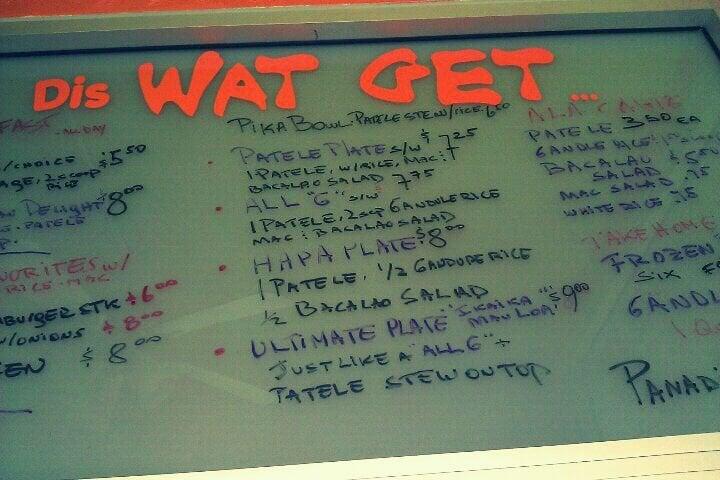 Dis WAT GET...
FAST ALL DAY
/CHOICE $5.50
AGE, 2 SCOOP
RICE
DELIGHT $8.00
PATELE
VORITES W/
RICE-MAC
BURGER STK $6.00
W/ONIONS $8.00
EN $8.00
PIKA BOWL: PATELE STEW/RICE 6.50
• PATELE PLATE S/W $7.25
1 PATELE, W/RICE, MAC:
BACALAO SALAD 7.75
• ALL "G" S/W
1 PATELE, 2SCP GANDULE RICE
MAC: BACALAO SALAD
• HAPA PLATE: $8.00
1 PATELE, 1/2 GANDUDE RICE
1/2 BACALAO SALAD
• ULTIMATE PLATE "SKAIKA MAULOA" $9.00
JUST LIKE A "ALL G" +
PATELE STEW ON TOP
ALA-CARTE
PATELE 3.50 EA
GANDULE
BACALAU $5.50
SALAD
MAC SALAD .75
WHITE RICE .75
TAKE HOME
FROZEN
SIX
GANDU
PANAD